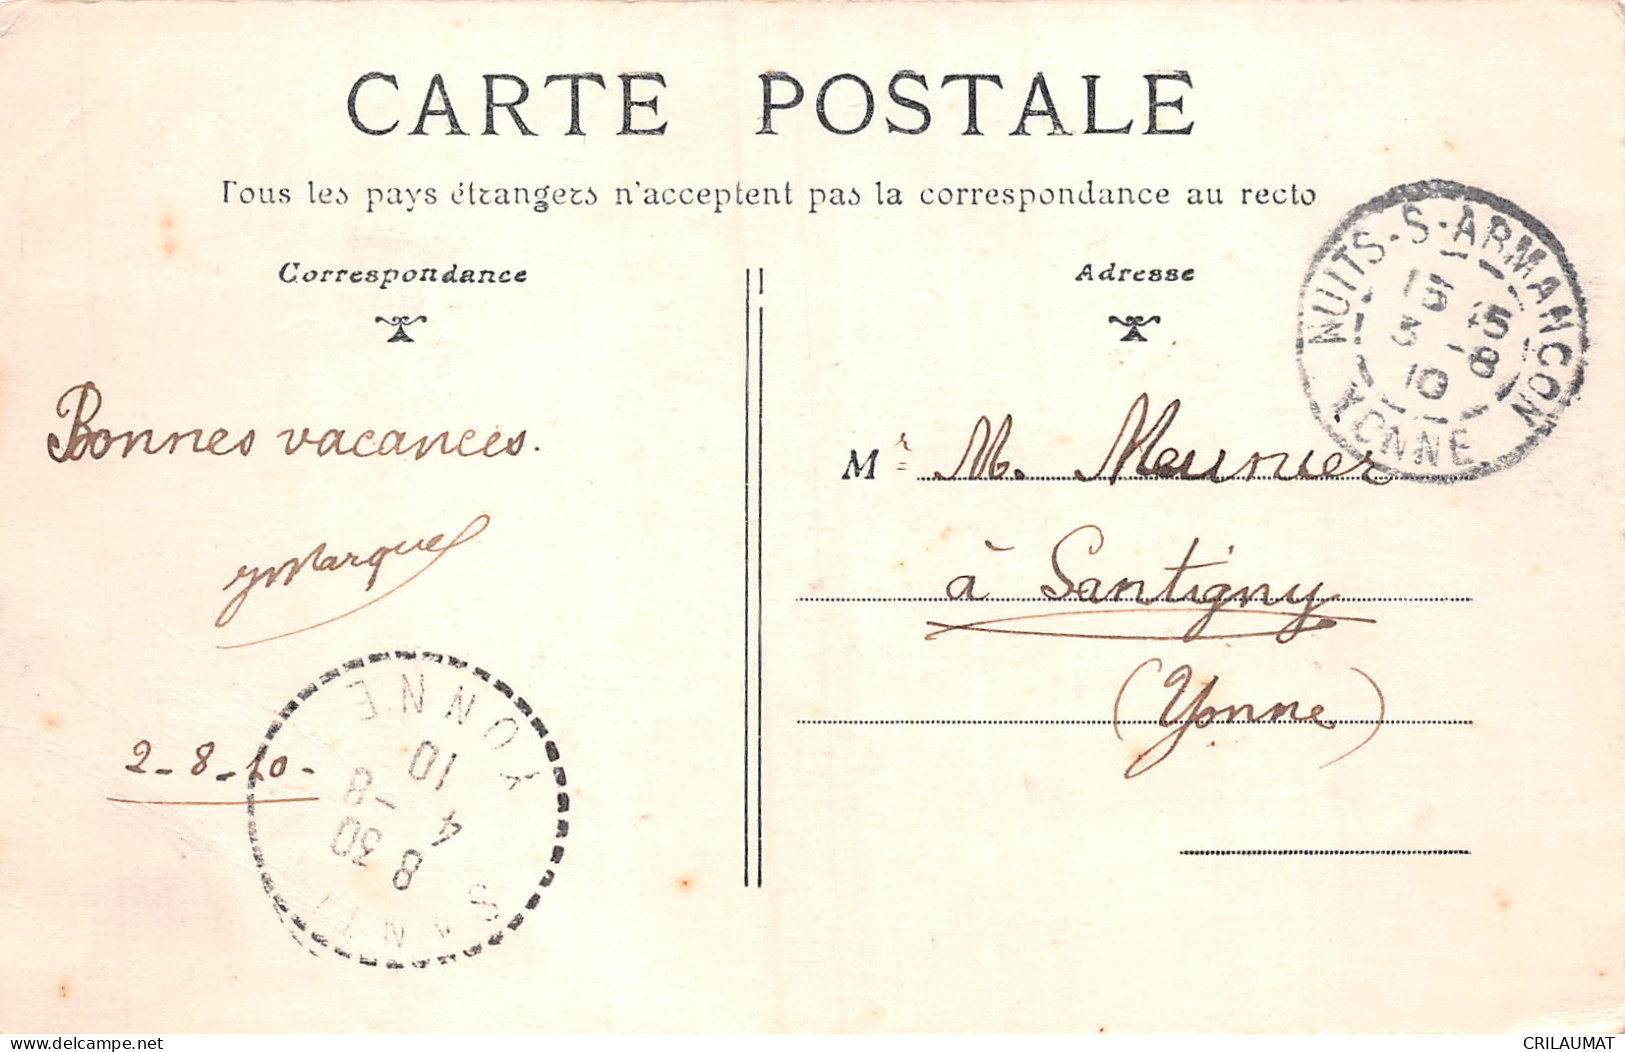 CARTE POSTALE
Tous les pays étrangers n'acceptent pas la correspondance au recto
Correspondance
Adresse
NUITS-S-ARMANCON
15 15
3 -8
10
YONNE
Bonnes vacances.
Mr M. Meunier
à Santigny
(Yonne)
2-8-10-
YONNE
10
-8
4
8 30
SANTI
delcampe.net
CRILAUMAT